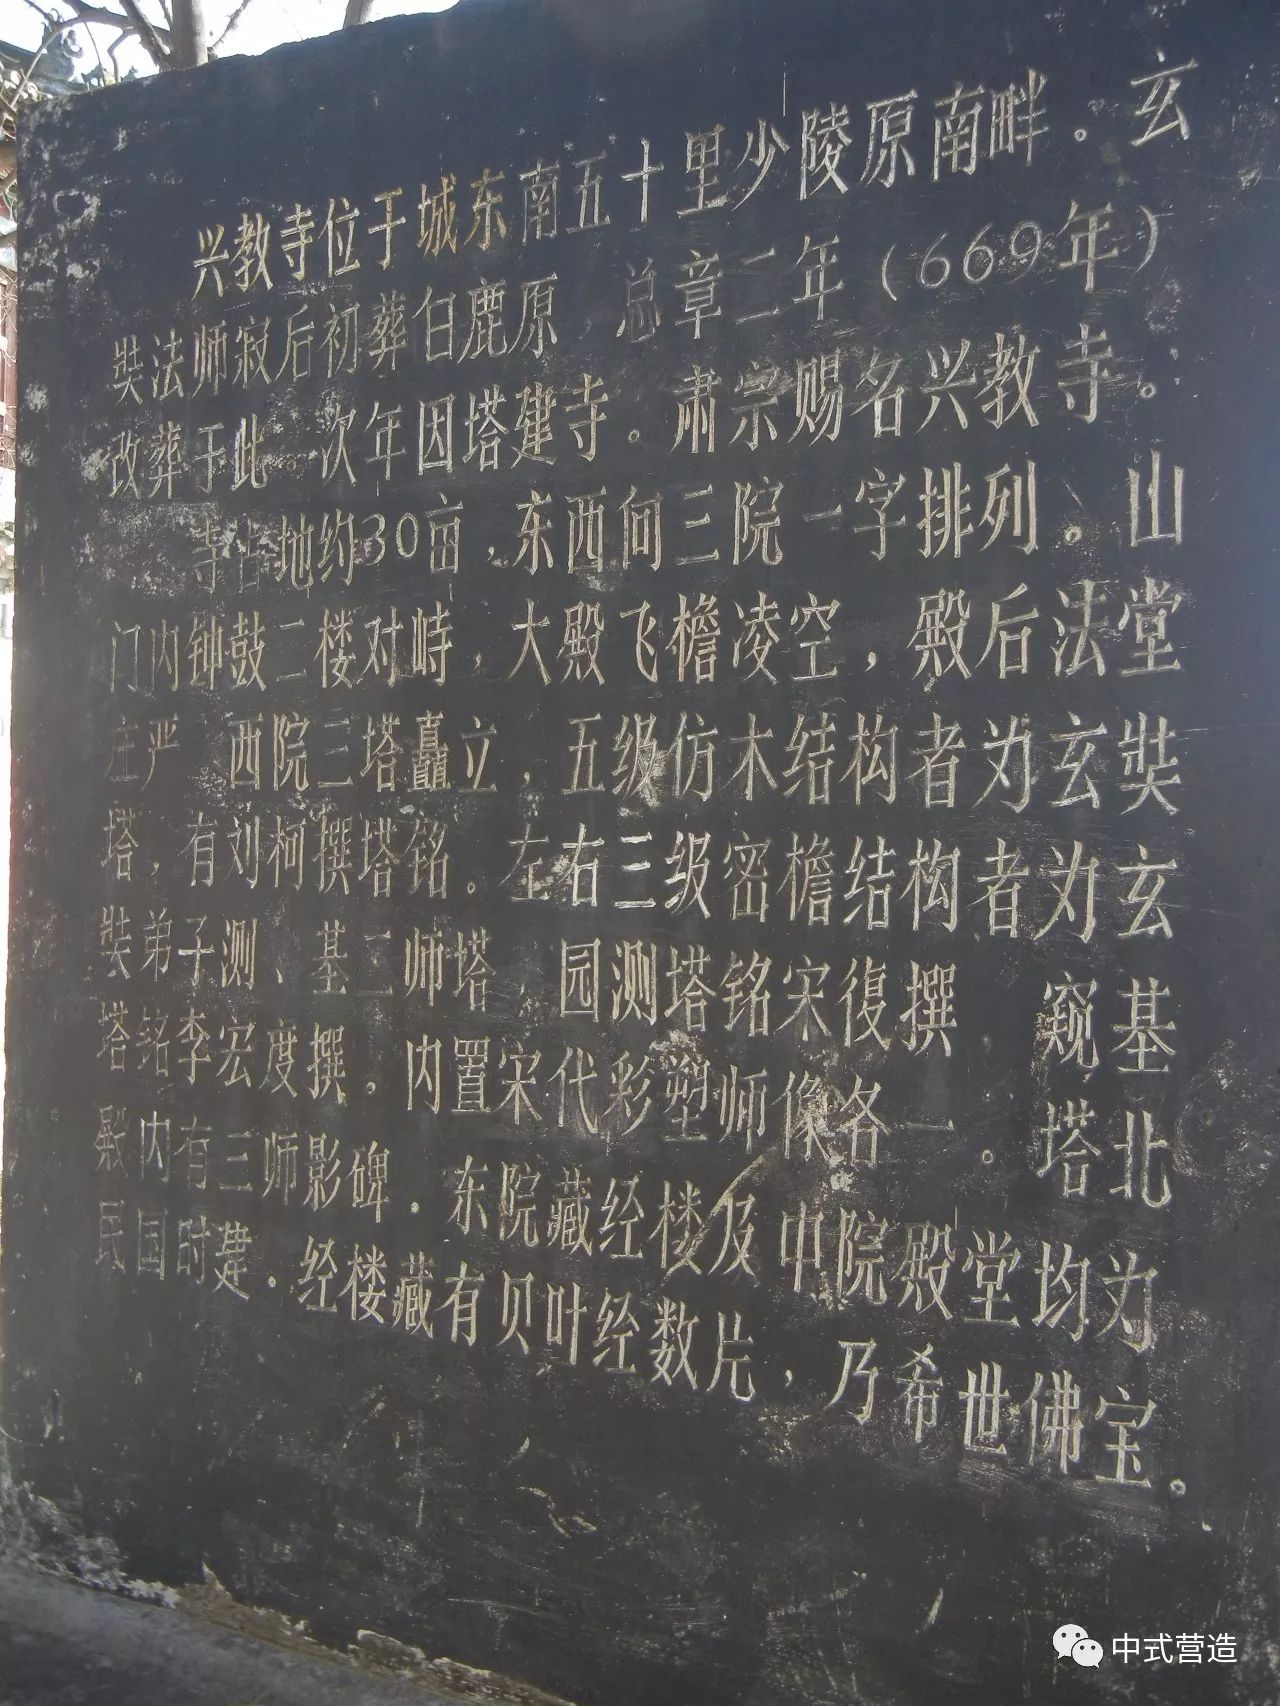 兴教寺位于城东南五十里少陵原南畔。玄
奘法师寂后初葬白鹿原，总章二年（669年）
改葬于此。次年因塔建寺。肃宗赐名兴教寺。
寺占地约30亩，东西向三院一字排列。山
门内钟鼓二楼对峙，大殿飞檐凌空，殿后法堂
庄严 西院三塔矗立，五级仿木结构者为玄奘
塔，有刘柯撰塔铭。左右三级密檐结构者为玄
奘弟子测、基二师塔，园测塔铭宋復撰。窥基
塔铭李宏度撰，内置宋代彩塑师像各一。塔北
殿内有三师影碑．东院藏经楼及中院殿堂均为
民国时建．经楼藏有贝叶经数片，乃希世佛宝。
中式营造